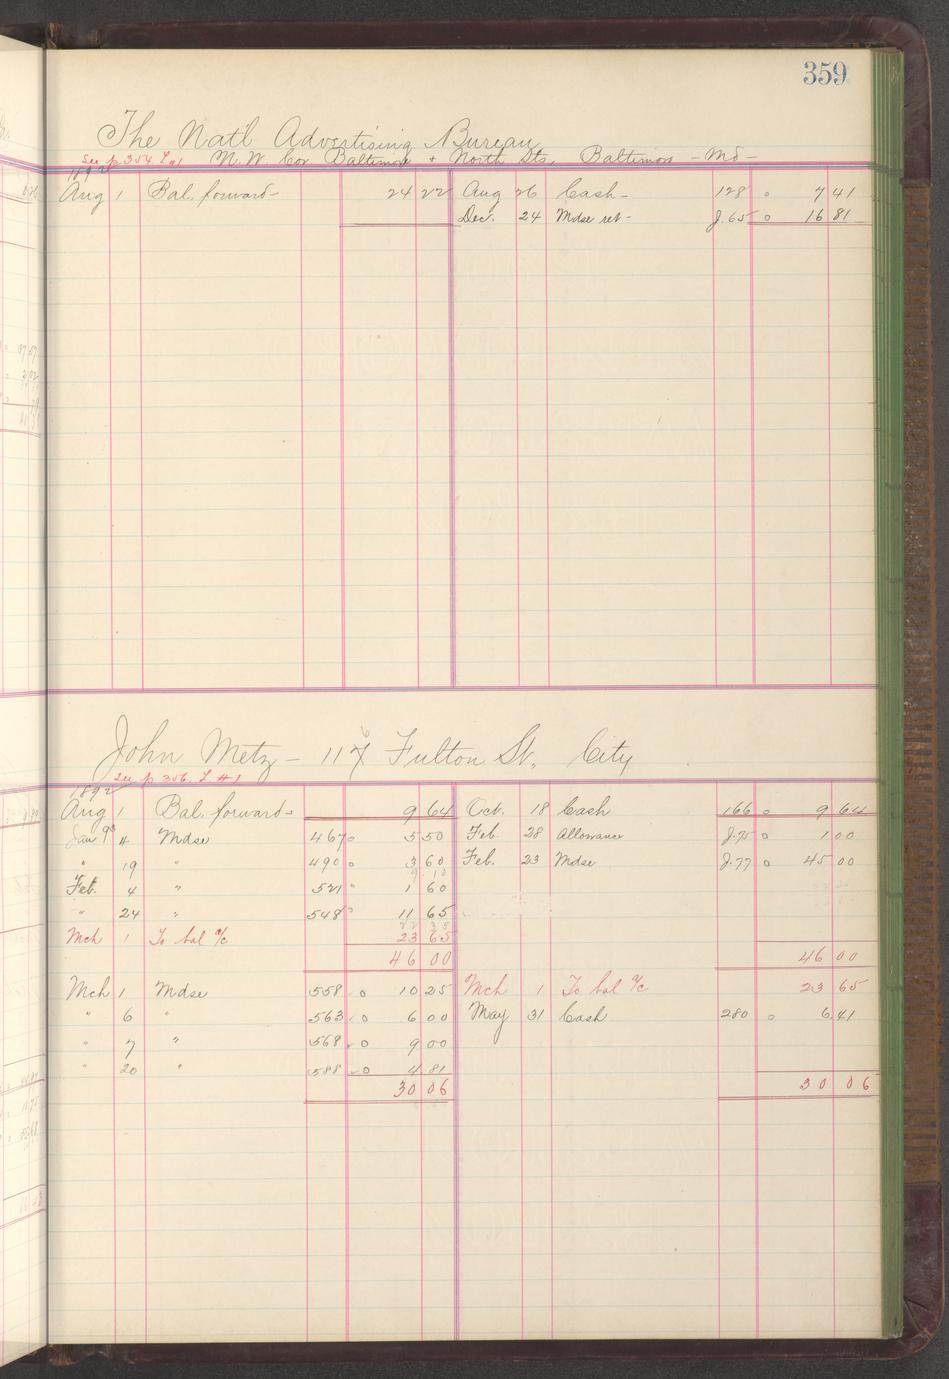 359
The Nat'l Advertising Bureau
See p 354 L #1 N.W. Cor. Baltimore + North Sts. Baltimore - Md -
1892
Aug 1 Bal. forward 24 22 Aug 26 Cash 128 o 7 41
Dec. 24 Mdse ret J.65 o 16 81
John Metz - 117 Fulton St. City
See p 356 L #1
1892
Aug 1 Bal. forward 9 64 Oct. 18 Cash 166 o 9 64
Jan 93 4 Mdse 467 o 5 50 Feb 28 Allowance J.75 o 1 00
" 19 " 490 o 3 60 Feb. 23 Mdse J.77 o 45 00
9 10
Feb. 4 " 521 o 1 60
" 24 " 548 o 11 65
22 35
Mch 1 To bal a/c 23 65
46 00 46 00
Mch 1 Mdse 558 o 10 25 Mch 1 To bal a/c 23 65
" 6 " 563 o 6 00 May 31 Cash 280 o 6 41
" 7 " 568 o 9 00
" 20 " 588 o 4 81
30 06 30 06